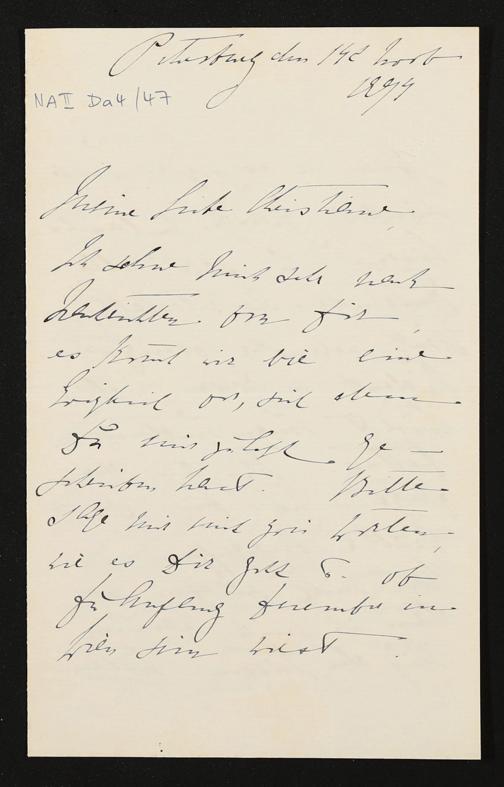 Petersburg den 14t Novb
1899
NA II Da4/47
Meine liebe Christiane
Ich sehne mich sehr nach
Nachrichten von Dir,
es kommt mir wie eine
Ewigkeit vor, seit dem
Du mir zuletzt ge-
schrieben hast. Bitte
sage mir mit zwei Worten,
wie es Dir geht u. ob
Du Anfang Dezember in
Wien sein wirst.